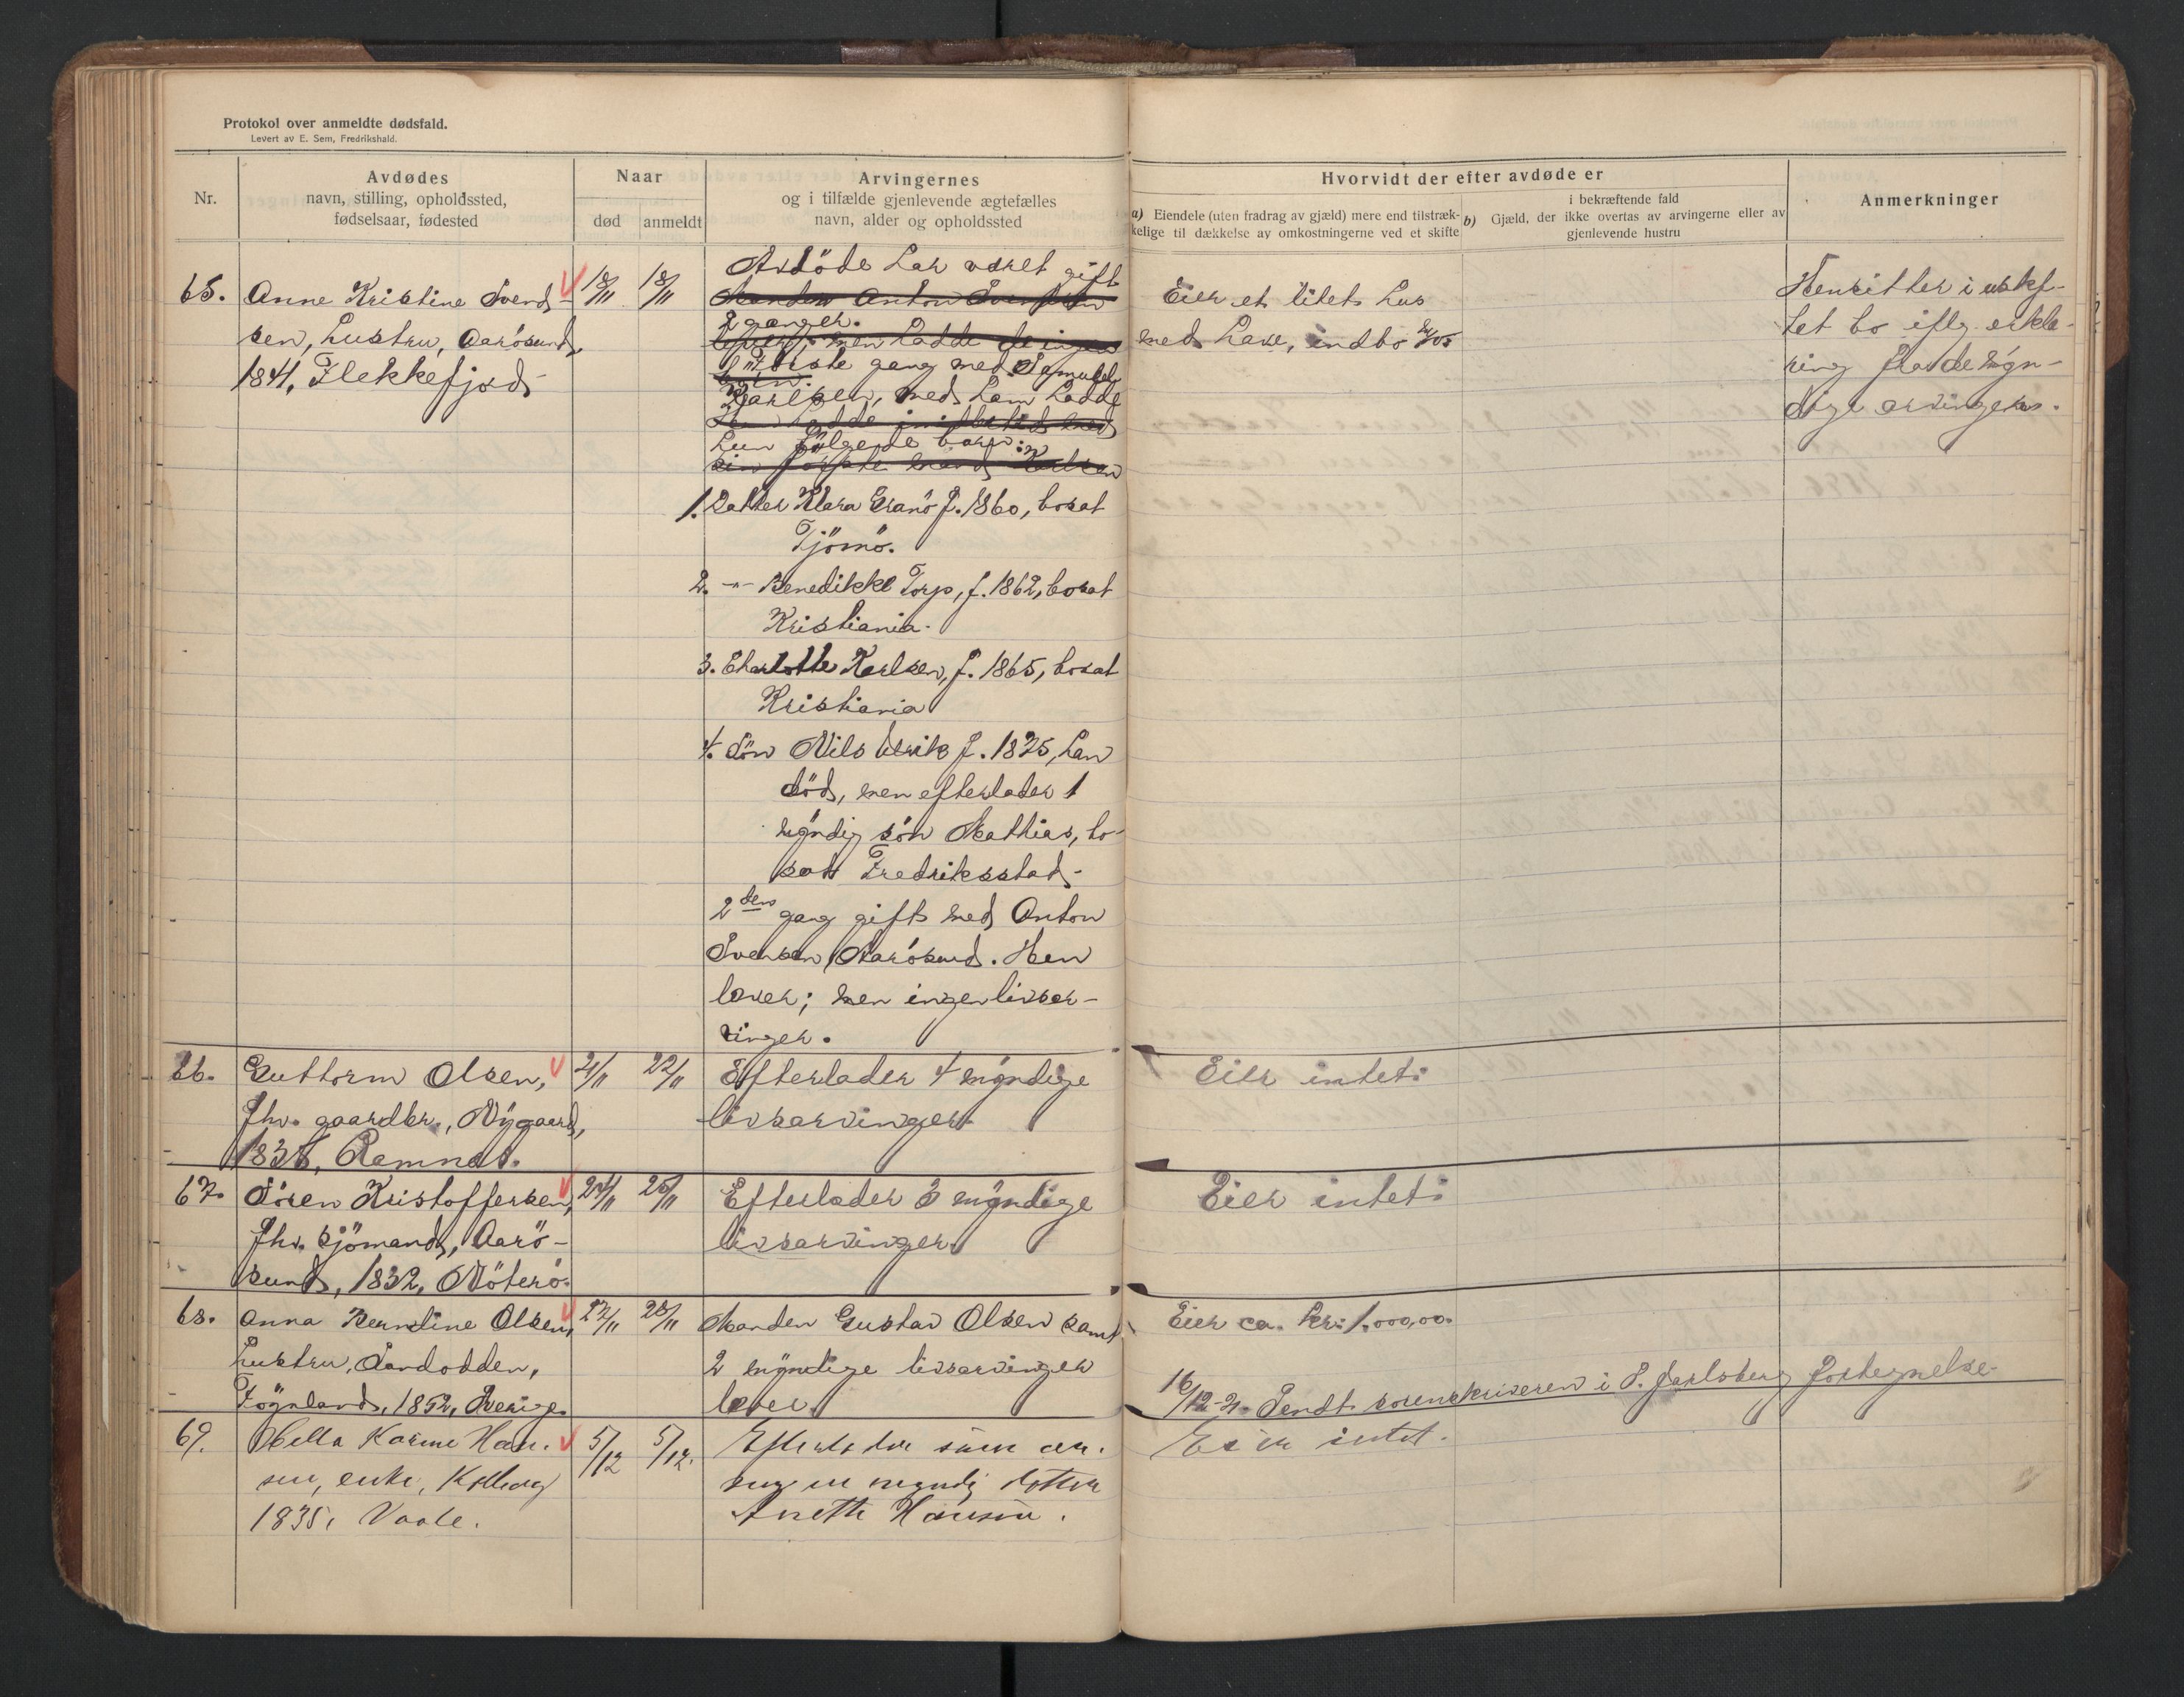 Protokol over anmeldte dødsfald.
Levert av E. Sem, Fredrikshald.
Nr.
Avdødes
navn, stilling, opholdssted,
fødselsaar, fødested
Naar
død
anmeldt
Arvingernes
og i tilfælde gjenlevende ægtefælles
navn, alder og opholdssted
Hvorvidt der efter avdøde er
a) Eiendele (uten fradrag av gjæld) mere end tilstræk-
kelige til dækkelse av omkostningerne ved et skifte
i bekræftende fald
b) Gjæld, der ikke overtas av arvingerne eller av
gjenlevende hustru
Anmerkninger
65. Anne Kristine Svend-
sen, hustru, Aarösund,
1841, Flekkefjord
18/11 18/11
Avdöde har været gift
Manden Anton Svendsen
2 ganger.
lever; men hadde de ingen
Förste gang med Samuel
Karlsen, med ham hadde
hun følgende barn:
sin første mand Karlsen
1. Datter Klara Granö f. 1860, bosat
Tjömö.
2. -"- Benedikke Torp, f. 1862, bosat
Kristiania.
3. Charlotte Karlsen, f. 1865, bosat
Kristiania
4. Sön Nils Ulrik f. 1875, han
död, men efterlader 1
myndig sön Mathias, bo-
sat Fredriksstad.
2den gang gift med Anton
Svensen, Aarösund. Han
lever; men ingen livsar-
vinger.
Eier et litet hus
med have, indbo
Hensitter i uskif-
tet bo iflg. erklæ-
ring fra de mýn-
dige arvinger.
66. Guttorm Olsen,
fhv. gaardbr., Nygaard,
Ramnes.
21/11 22/11
Efterlader 4 mýndige
livsarvinger
Eier intet.
67. Sören Kristoffersen,
fhv. sjömand, Aarö-
sund, 1832, Nöterö.
24/11 25/11
Efterlader 3 mýndige
livsarvinger
Eier intet.
68. Anna Berntine Olsen,
hustru, Sandodden,
Föynland, 1852, Sverige.
22/11 28/11
Manden Gustav Olsen samt
2 mýndige livsarvinger
lever
Eier ca. kr. 1.000,00.
16/12-21. Sendt sorenskriveren i S. Jarlsberg fortegnelse
69. Helle Karine Han-
sen, enke, Kolberg
1835, Vaale.
5/12 5/12.
Efterlader som ar-
ving en myndig datter
Anette Hansen.
Eier intet.